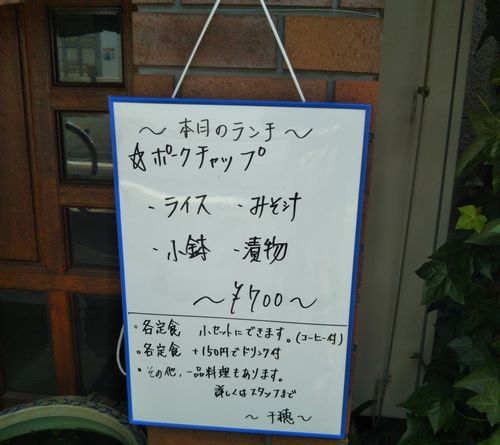 ～本日のランチ～
☆ポークチャップ
・ライス ・みそ汁
・小鉢 ・漬物
～¥700～
・各定食 小セットにできます。(コーヒー付)
・各定食 +150円でドリンク付
・その他、一品料理もあります。
詳しくはスタッフまで
～千穂～